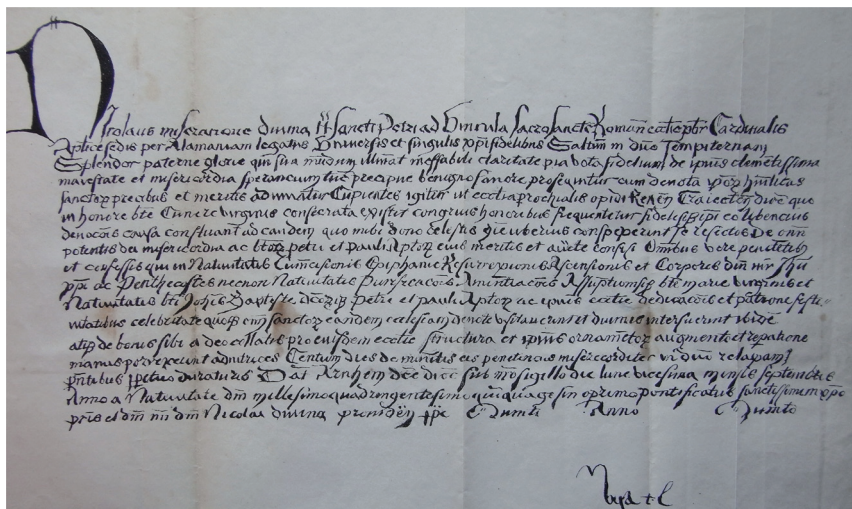 Nicolaus miseracione divina tt Sancti Petri ad Vincula Sacrosancte Romane ecclie pbr Cardinalis
Aplice sedis per Alamaniam legatus Universis et singulis xpifidelibus Salutem in dno Sempiternam
Splendor paterne glorie qui sua mundum illuminat ineffabili claritate pia vota fidelium de ipius clementissima
maiestate et misericordia sperancium tunc precipue benigno favore prosequitur cum devota ipor humilitas
sanctor precibus et meritis adiuvatur Cupientes igitur ut ecclia prochialis opidi Renen Traiecten dioc que
in honore bte Cunere virginis consecrata existit congruis honoribus frequentetur fidelesq xpi eo libencius
devocois causa confluant ad eandem quo inibi dono celestis gre uberius conspexerint se refectos De omi
potentis dei misericordia ac btor petri et pauli Aptor eius meritis et aucte confisi Omibus vere penitetib
et confessis qui in Nativitatis Circumcisionis Epiphanie Resurrexionis Ascensionis et Corporis dni nri Jhu
xpi ac Penthecostes necnon Nativitatis Purificacois Annuntiacois Assuptiomisq bte marie virginis et
Nativitatis bti Johis Baptiste dictorq Petri et pauli Aptor ac ipius ecclie dedicacois et patrone festi
vitatibus celebritate quoq omi sanctor eandem ecclesiam devote visitaverint et divinis interfuerint ibide
atq de bonis sibi a deo collatis pro eiusdem ecclie structura et ipius ornametor augmento et repatione
manus porrexerint adiutrices Centum dies de iniunctis eis penitenciis misericorditer in dno relaxam
pntibus ppetuo duraturis Dat Arnhem dce dioc sub nro sigillo die lune vicesima mensis septembris
Anno a Nativitate dni millesimoquadringentesimoquinquagesimoprimo pontificatus sanctissimi in xpo
pris et dni nri dni Nicolai divina providen ppe Quinti Anno Quinto